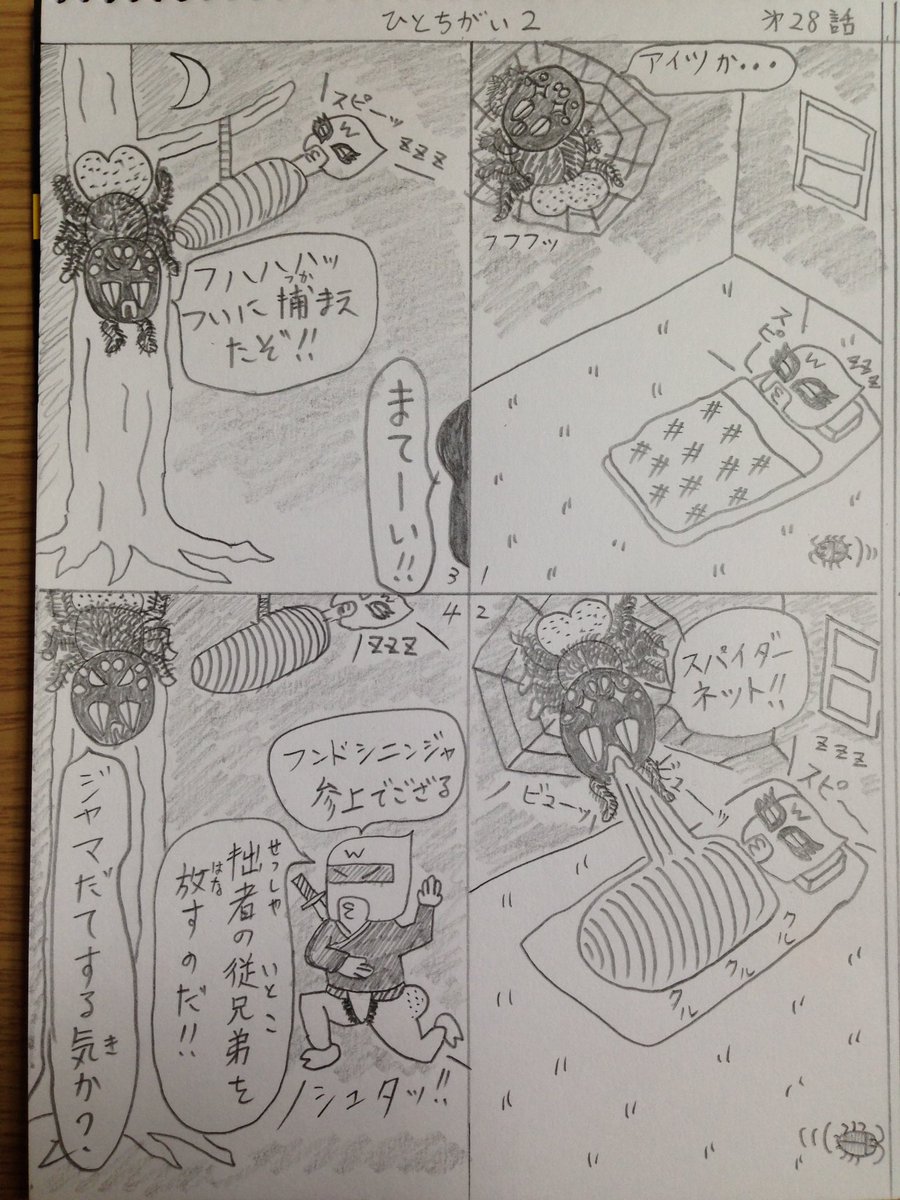 ひとちがい2
オ28話
アイツか・・・
フフフッ
スピー
zzz
1
2
スパイダー
ネット!!
ビューッ
ビュー
zzz
スピー
クル
クル
クル
クル
スピーッ
zzz
フハハハッ
ついに捕まえ
つか
たぞ!!
まてーい!!
3
4
zzz
フンドシニンジャ
参上でござる
拙者の従兄弟を
せっしゃ
いとこ
放すのだ!!
はな
シュタッ!!
ジャマだてする気か?
き